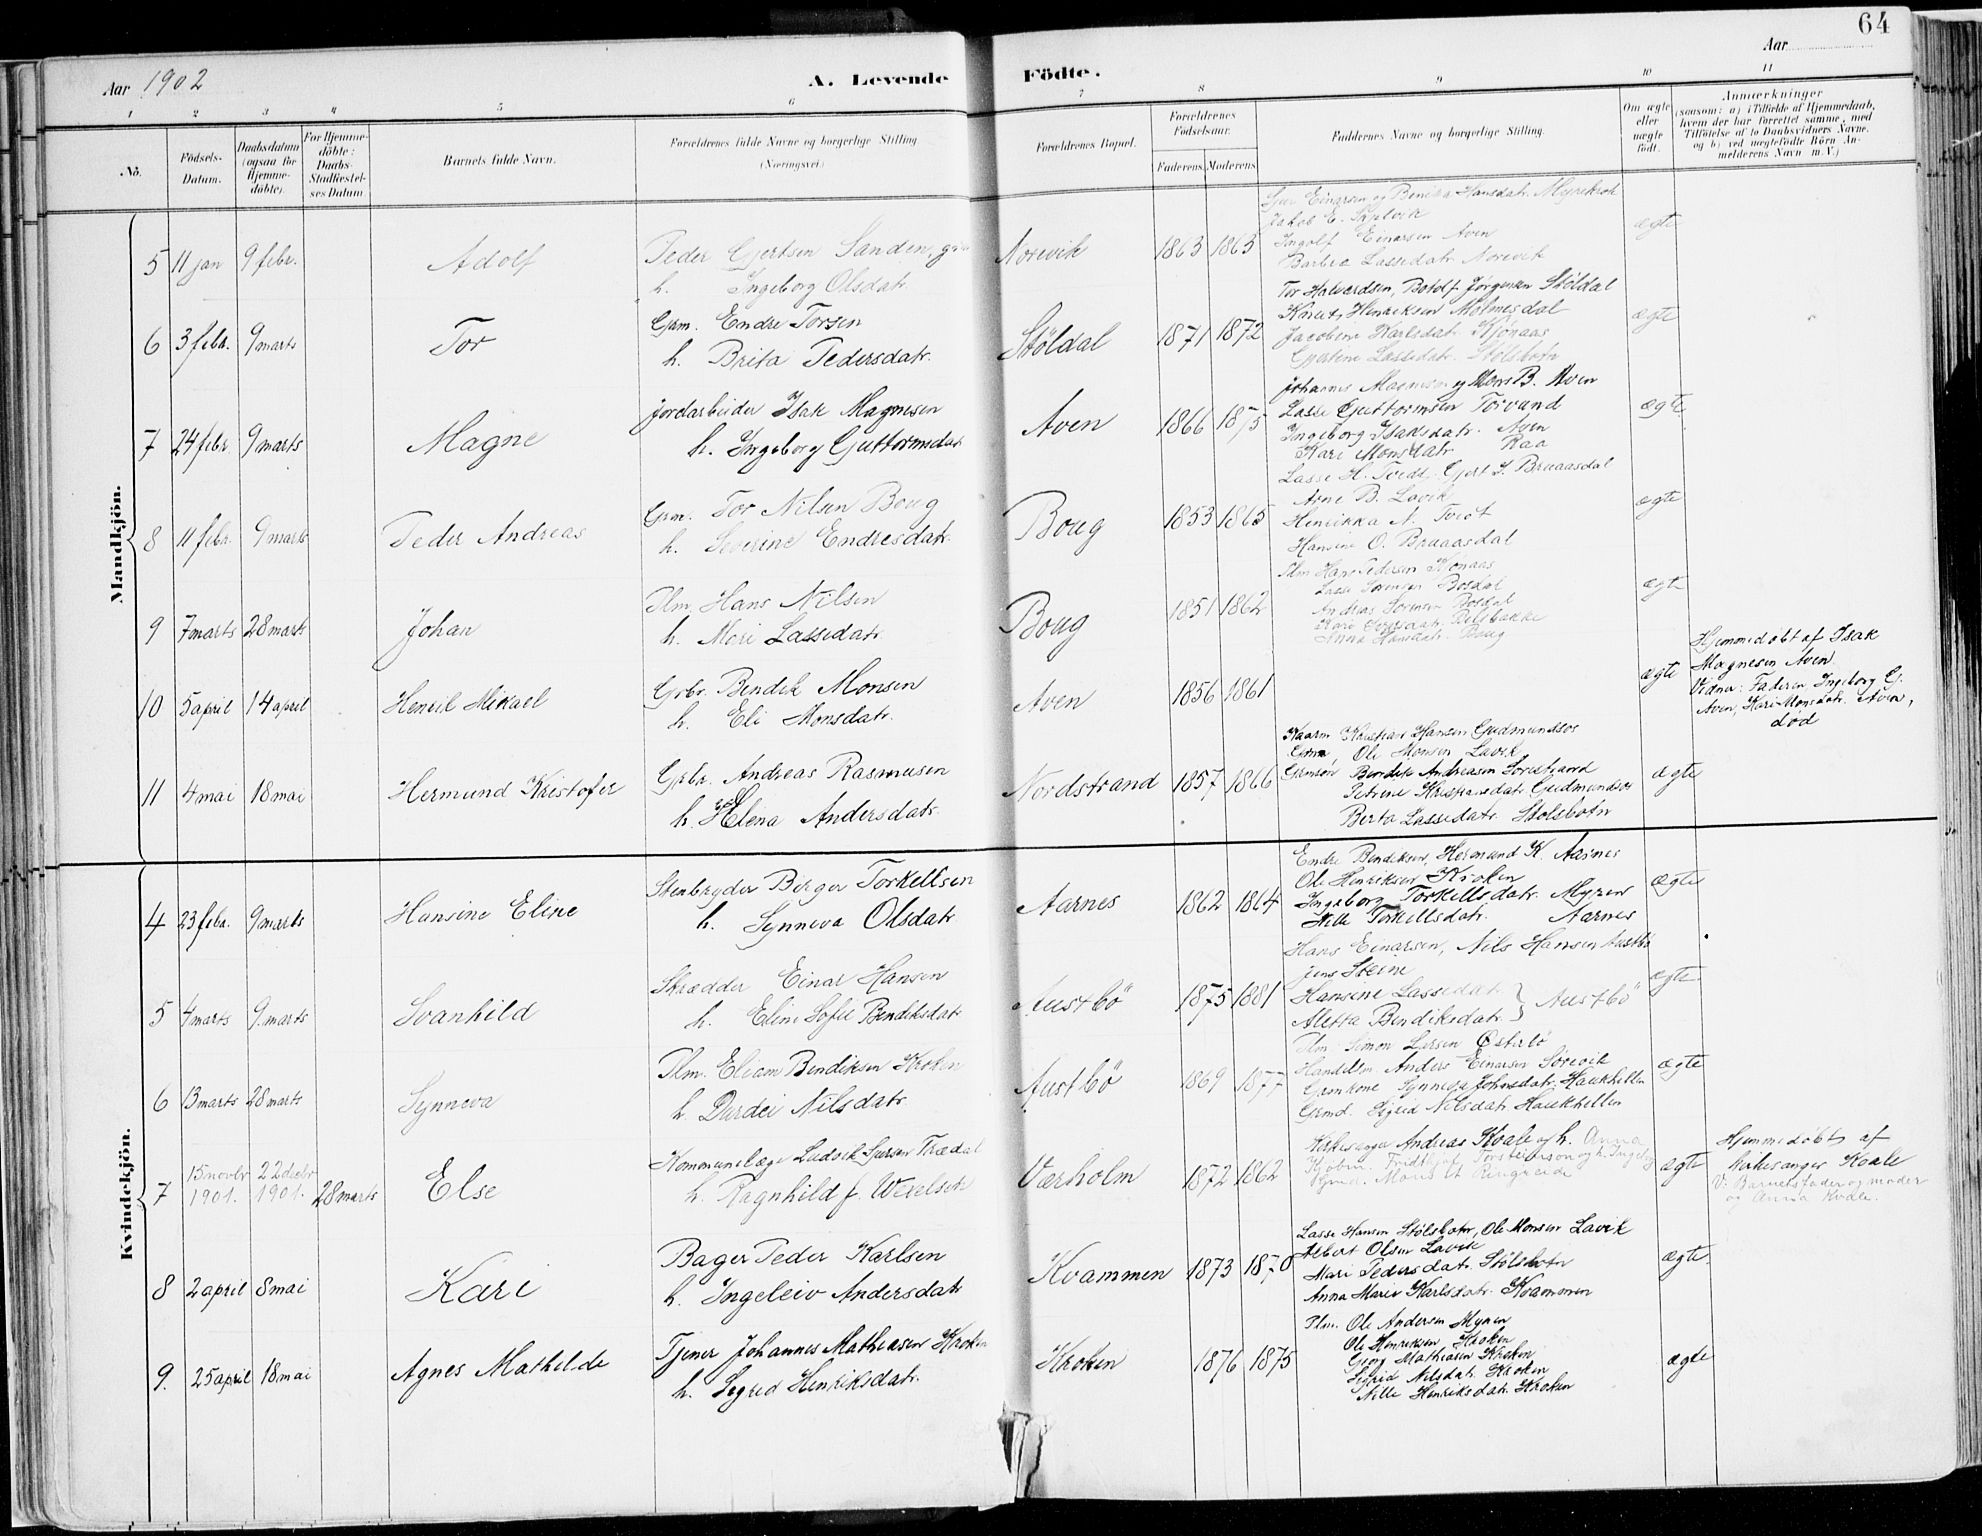 64
Aar 1902
A. Levende
Födte.
Aar
1 2 3 4 5 6 7 8 9 10 11
No.
Födsels-Datum.
Daabsdatum (ogsaa for Hjemmedöbte).
For Hjemmedöbte: Daabs-Stadfæstelses Datum.
Barnets fulde Navn.
Forældrenes fulde Navne og borgerlige Stilling (Næringsvei.)
Forældrenes Bopæl.
Forældrenes Födselsaar.
Faderens. Moderens.
Faddernes Navne og borgerlige Stilling.
Om ægte eller uægte födt.
Anmærkninger (saasom: a) i Tilfælde af Hjemmedaab, hvem der har forrettet samme, med Tilföielse af to Daabsvidners Navne, og b) ved uægtefödte Börn Anmelderens Navn m. V.)
Mandkjön.
5 11 jan 9 febr. Adolf
Peder Gjertsen Sanden,
h. Ingeborg Olsdatr.
Norevik 1863 1863
Einarsen og Hansdatr. Myrekrok
Jakob E.
Ingolf Einarsen Aven
Lassedatr. Norevik
ægte
6 3 febr. 9 marts Tor
Grm. Endre Torsen
h. Brita Pedersdatr.
Støldal 1871 1872
Tor Halvardsen, Botolf Jørgensen Støldal
Knut Henriksen Molmesdal
Jacobine Karlsdat. Kjønaas
Gjertine Lassedatr. Stølsbotn
ægte
7 24 febr 9 marts Magne
Jordarbeider Isak Magnesen
h. Ingeborg Guttormsdat
Aven 1866 1875
Johannes Magnesen og Mons B. Aven
Lasse Guttormsen Torvund
Ingeborg Isaksdatr. Aven
Kari Monsdatr Raa
ægte
8 11 febr. 9 marts Peder Andreas
Grm. Tor Nilsen Boug
h. Severine Endresdat.
Boug 1853 1865
Lasse H. Tvedt, Gjert J. Bruaasdal
Arne B. Lavik
Henrikka N. Tvedt
Hansine O. Bruaasdal
ægte
9 7 marts 28 marts Johan
Plm. Hans Nilsen
h. Mari Lassedatr.
Boug 1851 1862
Plm Hans Pedersen Kjønaas
Lasse Sørensen Bosdal
Andreas Sørensen Bosdal
Anna Hansdatr. Boug
ægte
10 5 april 14 april Henrik Mikael
Grbr. Bendik Monsen
h. Eli Monsdatr.
Aven 1856 1861
ægte
Hjemmedøbt af Isak
Magnesen Aven.
Vidner: Faderen, Ingeborg G.
Aven, Kari Monsdatr. Aven,
død
11 4 mai 18 mai Hermund Kristofer
Grbr. Andreas Rasmusen
h. Helena Andersdatr.
Nordstrand 1857 1866
Kaarm Kristian Hansen Gudmundsøs
Grm Ole Monsen Lavik
Grmsøn Bendik Andreasen Sørestrand
Petrine Kristiansdatr. Gudmundsøs
Berta Lassedatr. Stølsbotn
ægte
Kvindekjön.
4 23 febr. 9 marts Hansine Eline
Stenbryder Birger Torkellsen
h. Synneva Olsdatr
Aarnes 1862 1864
Endre Bendiksen, Hermund K. Aarnes
Ole Henriksen Kroken
Ingeborg Torkellsdatr. Myren
Torkellsdatr. Aarnes
ægte
5 4 marts 9. marts Svanhild
Skrædder Einar Hansen
h. Eline Sofie Bendiksdatr
Austbö 1875 1881
Hans Einarsen, Nils Hansen Austbö
Jens Steine
Hansine Lassedat.
Aletta Bendiksdatr. } Austbö
ægte
6 13 marts 28 marts Synneva
Plm. Eliam Bendiksen Kroken
h. Durdei Nilsdatr.
Austbö 1869 1877
Plm. Simon Larsen Østerbö
Handelsm. Anders Einarsen Sørevik
Grmkone Synneva Johnsdatr. Haukhellen
Grmd. Sigrid Nilsdatr. Haukhellen
ægte
7 15 novbr 1901. 22 decbr 1901. 28 marts Else
Kommunelæge Ludvik Sjursen Trædal
h. Ragnhild f. Wexelsen
Værholm 1872 1862
Kirkesanger Andreas Kvale og h. Anna
Kjøbm. Fridtjof Torsteinson og h. Ingeborg
Grmd. Mons Ringereide
ægte
Hjemmedøbt af
kirkesanger Kvale
V: Barnets fader og moder
og Anna Kvale.
8 2 april 8 mai Kari
Bager Peder Karlsen
h. Ingeleiv Andersdatr
Kvammen 1873 1870
Lasse Hansen Stølsbotn, Ole Monsen Lavik
Albert Olsen Lavik
Mari Pedersdatr. Stølsbotn
Anna Marie Karlsdatr. Kvammen
ægte.
9. 25 april 18 mai Agnes Mathilde
Tjener Johannes Mathiasen Kroken
h. Sigrid Henriksdatr.
Kroken 1876 1875
Plm. Ole Andersen Myren
Ole Henriksen Kroken
Georg Mathiasen Kroken
Sigrid Nilsdatr. Kroken
Nille Henriksdatr. Kroken
ægte